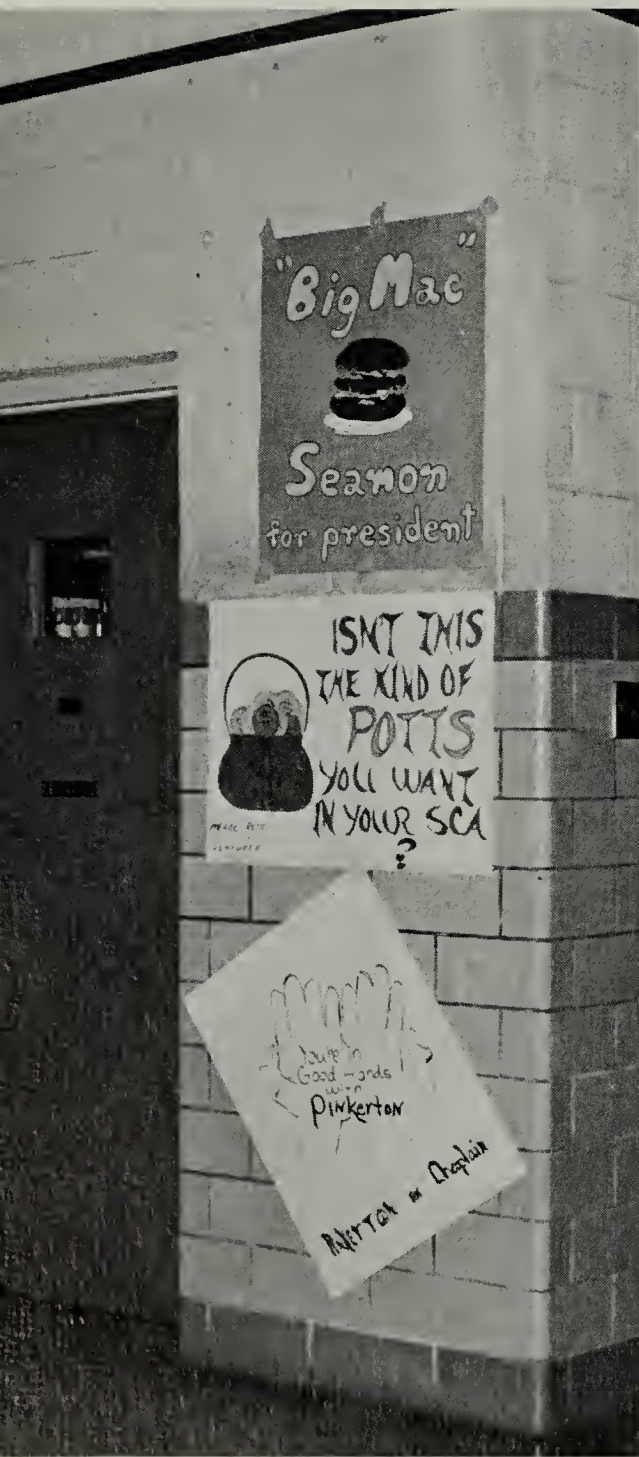 "Big Mac"
Seamon
for president
ISNT THIS
THE KIND OF
POTTS
YOU WANT
IN YOUR SCA
?
You're in
Good Hands
with
Pinkerton
Chaplain